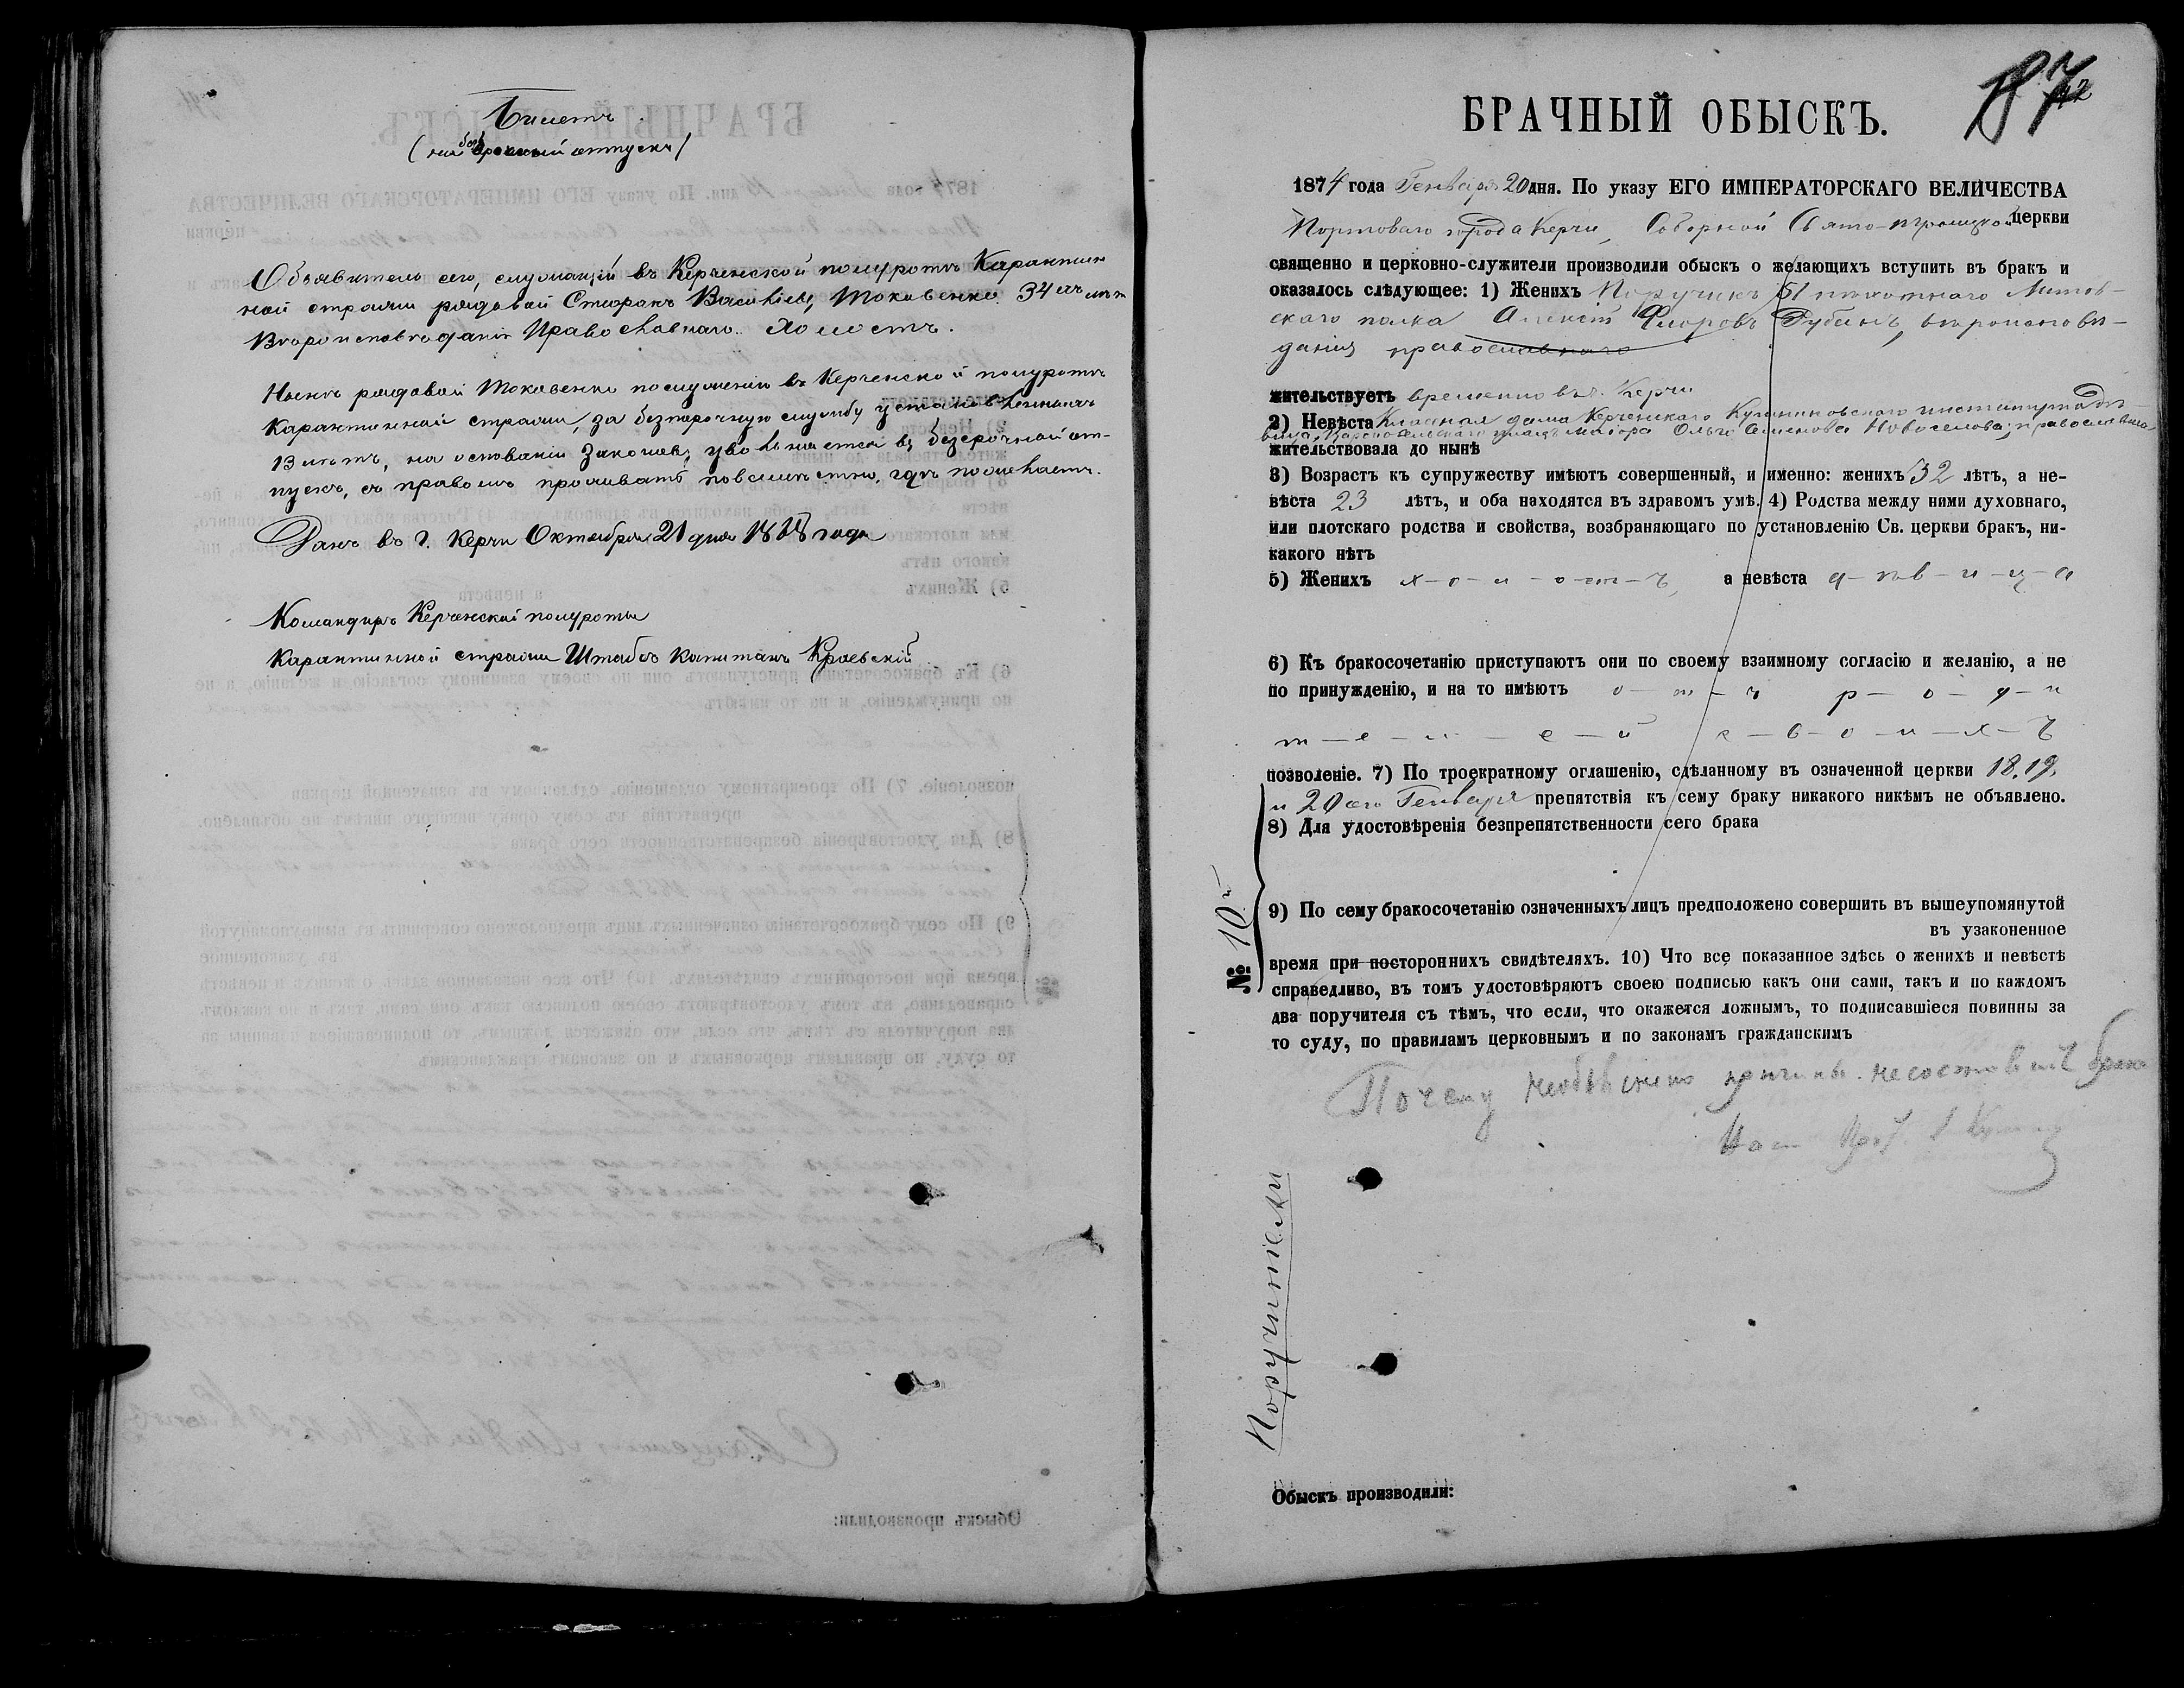 Билетъ
(на безсрочный отпускъ)
Объявитель сего, служащій въ Керченской полуротѣ Карантин
ной стражи рядовой Стефанъ Васильевъ Токовенко 34хъ лѣтъ
Вѣроисповѣданія Православнаго. Холостъ.
Нынѣ рядовой Токовенко послуженіи въ Керченской полуротѣ
Карантинной стражи, за безпорочную службу установленныхъ
13 лѣтъ, на основаніи Законовъ, увольняется въ безсрочный от-
пускъ, съ правомъ проживать повсемѣстно, гдѣ пожелаетъ.
Данъ въ г. Керчи Октября 21 дня 1868 года
Командиръ Керченской полуроты
Карантинной стражи Штабсъ Капитанъ Краевскій
БРАЧНЫЙ ОБЫСКЪ.
1874 года Генваря 20 дня. По указу ЕГО ИМПЕРАТОРСКАГО ВЕЛИЧЕСТВА
Портоваго города Керчи, Соборной Свято-Троицкой церкви
священно и церковно-служители производили обыскъ о желающихъ вступить въ бракъ и
оказалось слѣдующее: 1) Женихъ Поручикъ 51 пѣхотнаго Литов-
скаго полка Алексѣй Ѳедоровъ Рубанъ, вѣроисповѣ-
данія православнаго
жительствуетъ временно въ г. Керчи
2) Невѣста Классная дама Керченскаго Кушниковскаго института дѣ-
вица, маіора Ольга Семенова Новоселова; православнаго
жительствовала до нынѣ
3) Возрастъ къ супружеству имѣютъ совершенный, и именно: женихъ 32 лѣтъ, а не-
вѣста 23 лѣтъ, и оба находятся въ здравомъ умѣ. 4) Родства между ними духовнаго,
или плотскаго родства и свойства, возбраняющаго по установленію Св. церкви бракъ, ни-
какого нѣтъ
5) Женихъ х-о-л-о-ст-ъ, а невѣста д-ѣв-и-ц-а
6) Къ бракосочетанію приступаютъ они по своему взаимному согласію и желанію, а не
по принужденію, и на то имѣютъ о-т-ъ р-о-д-и
т-е-л-е-й с-в-о-и-х-ъ
позволеніе. 7) По троекратному оглашенію, сдѣланному въ означенной церкви 18, 19,
и 20го Генваря препятствія къ сему браку никакого никѣмъ не объявлено.
8) Для удостовѣренія безпрепятственности сего брака
№ 10й
9) По сему бракосочетанію означенныхъ лицъ предположено совершить въ вышеупомянутой
въ узаконенное
время при постороннихъ свидѣтеляхъ. 10) Что все показанное здѣсь о женихѣ и невѣстѣ
справедливо, въ томъ удостовѣряютъ своею подписью какъ они сами, такъ и по каждомъ
два поручителя съ тѣмъ, что если, что окажется ложнымъ, то подписавшіеся повинны за
то суду, по правиламъ церковнымъ и по законамъ гражданскимъ
Почему необъяснено причины несостоявш. брака
Поручители
Обыскъ производили: